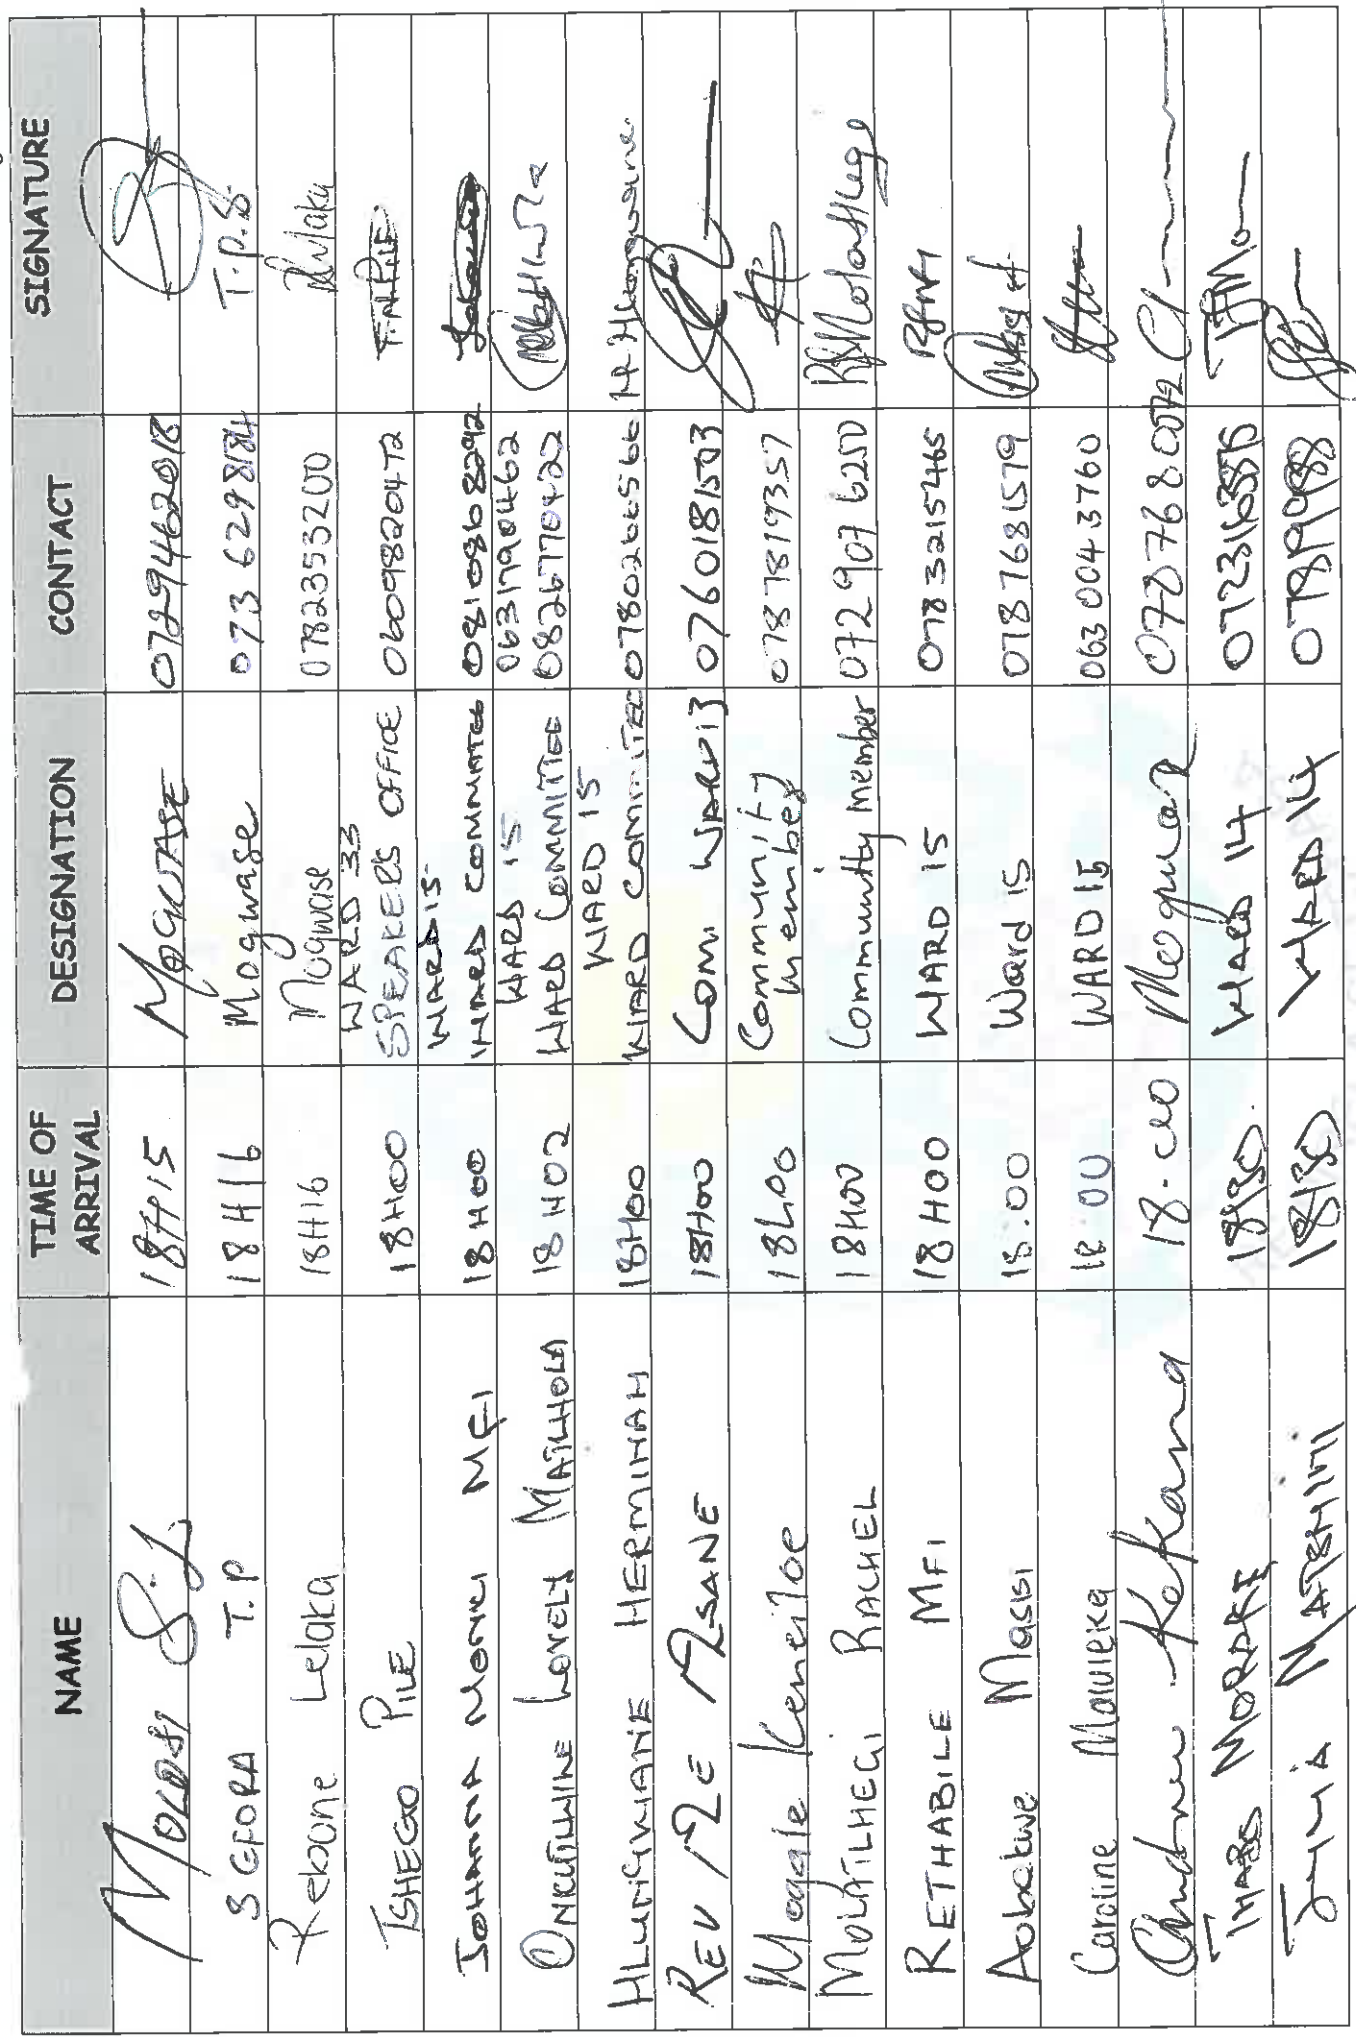 NAME TIME OF ARRIVAL DESIGNATION CONTACT SIGNATURE
MOLOSI S.J 18H15 MOGWASE
SEFORA T.P 18H16 Mogwase 073 6298184 T.P.S
Rebone Lelaka 18H16 Mogwase 0782353200 Lelaka
TSHEGO PILE 18H00 WARD 33 SPEAKERS OFFICE 0609820472 T.N.PILE
JOHANNA MONICI MFI 18H00 WARD 15 WARD COMMITTEE 0810868292
LOVELY MATLHOLA 18H02 WARD 15 WARD COMMITTEE 0631790462 0826770422
HLUNGWANE HERMINAH 18H00 WARD 15 WARD COMMITTEE 0780266566 H.Hlungwane
REV 18H00 Com WARD 13 0760181503
Maggie Keneiloe 18h00 Community member 0787819357
MOLATLHEGI RACHEL 18H00 Community member 072 907 6250 RMolatlhegi
RETHABILE MFI 18H00 WARD 15 078 3215465 RfMfi
Aobakwe Masisi 18:00 Ward 15 0787681579
Caroline Moluleka 18:00 WARD 15 063 004 3760
Andrew Kekana 18.00 0787680072
THABO MORAKE 18h30 WARD 14
MATSHITI 18h30 WARD 14